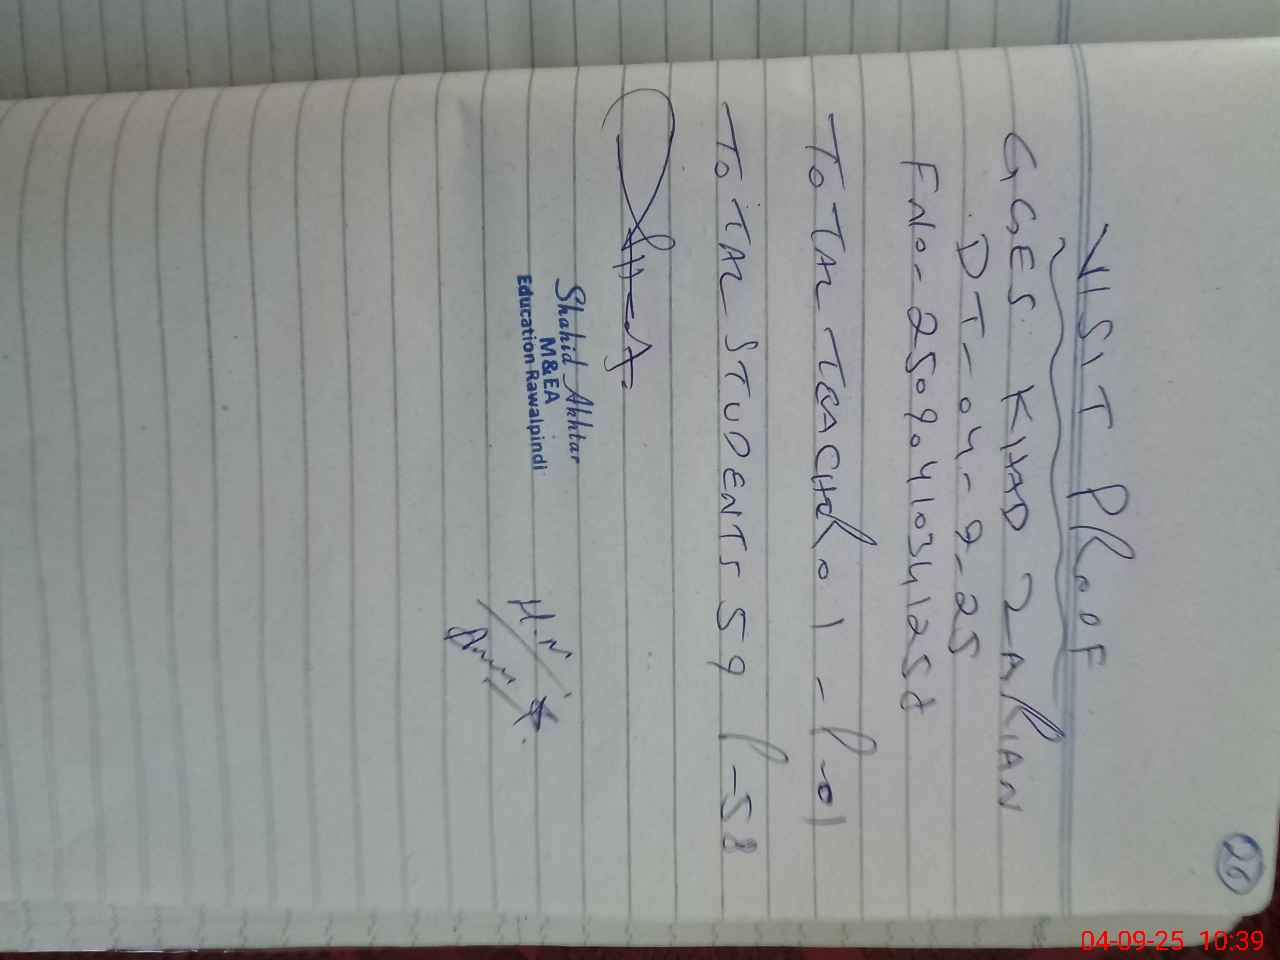 26
VISIT PROOF
GGES KHAD ZARIAN
DT-04-9-25
FNO-
TOTAL TEACHER 01 - P-01
TOTAL STUDENTS 59 P-58
Shahid Akhtar
M&EA
Education Rawalpindi
04-09-25 10:39